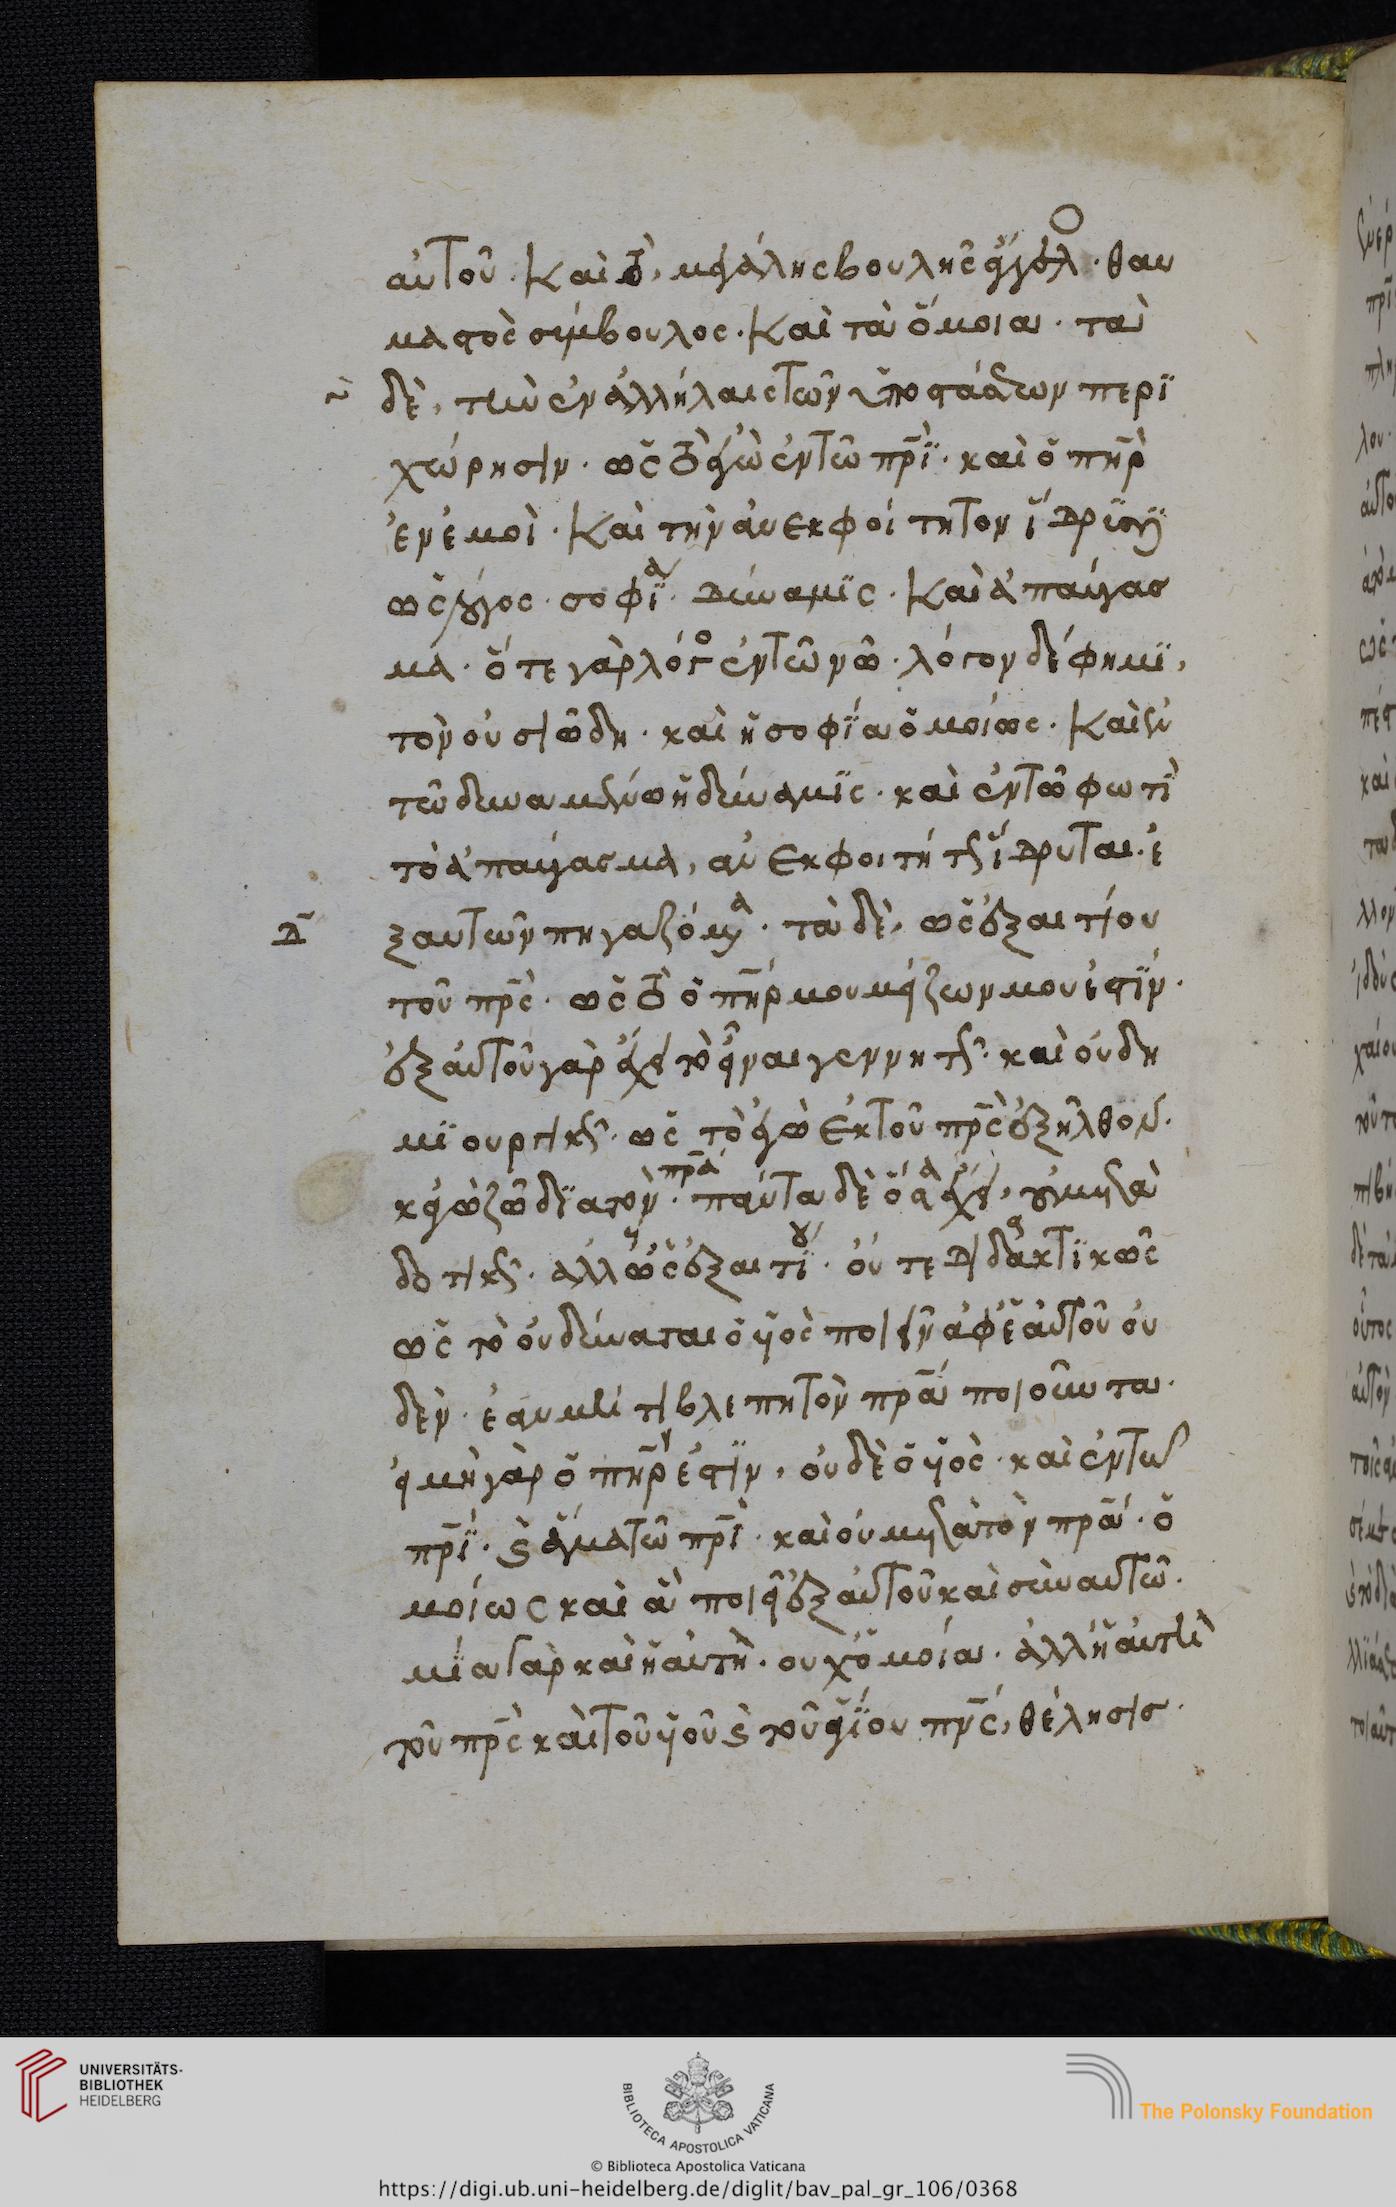 αὐτοῦ. καὶ τὸ, μεγάλης βουλῆς ἄγγελος. θαυ
μαστὸς σύμβουλος. καὶ τὰ ὅμοια. τὰ
δὲ, τὴν ἐν ἀλλήλαις τῶν ὑποστάσεων περι
χώρησιν. ὡς τὸ ἐγὼ ἐν τῶ πρι. καὶ ὁ πηρ
ἐν ἐμοί. καὶ τὴν ἀνεκφοίτητον ἵδρυσιν
ὡς λόγος. σοφία. δύναμις. καὶ ἀπαύγασ
μα. ὅ τε γὰρ λόγος ἐν τῶ νῶ. λόγον δέ φημι,
τὸν οὐσιώδη. καὶ ἡ σοφία ὁμοίως. καὶ ἐν
τῶ δυναμένω ἡ δύναμις. καὶ ἐν τῶ φωτὶ
τὸ ἀπαύγασμα, ἀνεκφοιτήτως ἵδρυται. ἐ
δ ξ αὐτῶν πηγαζόμενα. τὰ δὲ, ὡς ἐξ αἰτίου
τοῦ πρς. ὡς τὸ ὁ πηρ μου μείζων μου ἐστίν.
ἐξ αὐτοῦ γὰρ ἔχει τὸ εἶναι γεννητῶς. καὶ οὐ δη
μιουργικῶς. ὡς τὸ ἐγὼ ἐκ τοῦ πρς ἐξῆλθον.
κἀγὼ ζῶ διὰ τὸν πρα. πάντα δὲ ὅσα ἔχει, οὐ μετα
δοτικῶς. ἀλλ ὡς ἐξ αἰτίου. οὔτε διδακτικῶς
ὡς τὸ οὐ δύναται ὁ υἱὸς ποιεῖν ἀφ ἑαυτοῦ οὐ
δέν. ἐὰν μή τι βλέπη τὸν πρα ποιοῦντα.
εἰ μὴ γὰρ ὁ πηρ ἐστὶν, οὐδὲ ὁ υἱός. καὶ ἐν τῶ
πρι. καὶ ἅμα τῶ πρι. καὶ οὐ μετὰ τὸν πρα. ὁ
μοίως καὶ ἃ ποιεῖ ἐξ αὐτοῦ καὶ σὺν αὐτῶ.
μία γὰρ καὶ ἡ αὐτὴ. οὐχ ὁμοία. ἀλλ ἡ αὐτὴ
τοῦ πρς καὶ τοῦ υἱοῦ καὶ τοῦ ἁγίου πνς, θέλησις.
UNIVERSITÄTS-
BIBLIOTHEK
HEIDELBERG
BIBLIOTECA APOSTOLICA VATICANA
The Polonsky Foundation
© Biblioteca Apostolica Vaticana
https://digi.ub.uni-heidelberg.de/diglit/bav_pal_gr_106/0368